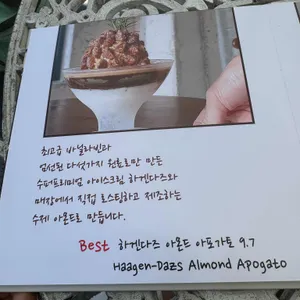 최고급 바닐라빈과
엄선된 다섯가지 원료로만 만든
수퍼프리미엄 아이스크림 하겐다즈와
매장에서 직접 로스팅하고 제조하는
수제 아몬드로 만듭니다.
Best 하겐다즈 아몬드 아포가토 9.7
Haagen-Dazs Almond Apogato